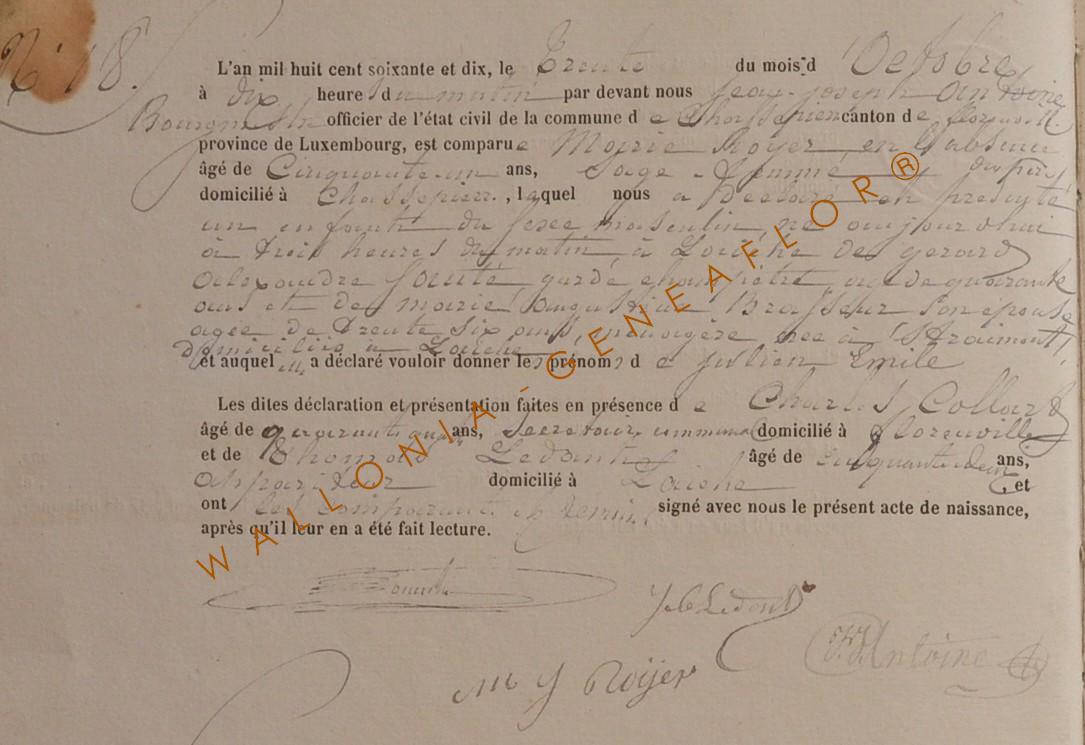 N° 18.
L'an mil huit cent soixante et dix, le Trente du mois d'Octobre
à dix heure du matin par devant nous Jean-joseph Antoine
Bourgmestre officier de l'état civil de la commune de Chassepierre canton de Florenville
province de Luxembourg, est comparue Marie Royer, en l'absence du père,
âgé de Cinquante-un ans, Sage-femme
domicilié à Chassepierre, laquel nous a déclaré et présenté
un enfant du sexe masculin, né aujourd'hui
à Trois heures du matin, à Laiche de gerard
alexandre garde champêtre, agé de quarante
ans et de marie augustine Brasseur son épouse
agée de Trente six ans, ménagère née à Straimont,
domiciliés à Laiche
et auquel a déclaré vouloir donner les prénoms de julien Emile
Les dites déclaration et présentation faites en présence de Charles Collard
âgé de ans, Secretaire communal domicilié à Florenville
et de Thomas Ledent âgé de cinquante deux ans,
domicilié à Laiche et
ont les comparant et temoins signé avec nous le présent acte de naissance,
après qu'il leur en a été fait lecture.
J Antoine
M J Roijer
WALLONIA - GENEAFLOR ®